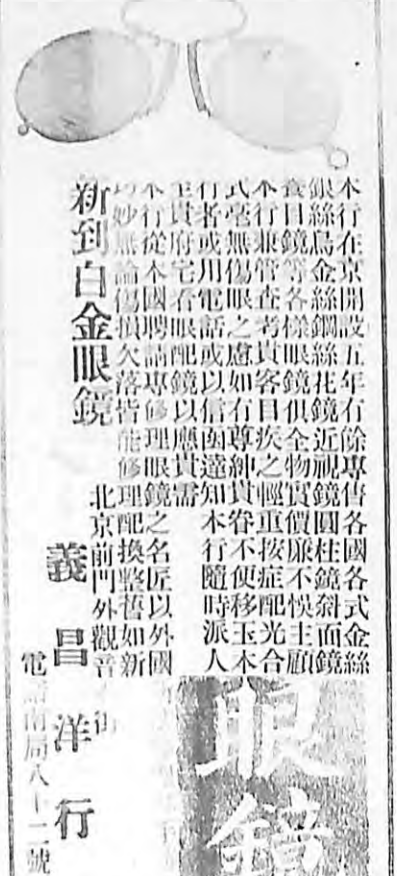 本行在京開設五年有餘專售各國各式金絲
銀絲烏金絲鋼絲花鏡近視鏡圓柱鏡斜面鏡
養目鏡等各樣眼鏡俱全物實價廉不悞主顧
本行兼管查考貴客目疾之輕重按症配光合
式毫無傷眼之慮如有尊紳貴眷不便移玉本
行者或用電話或以信函達知本行隨時派人
至貴府宅看眼配鏡以應貴需
本行從本國聘請專修理眼鏡之名匠以外國
巧妙無論傷損欠落皆能修理配換整舊如新
新到白金眼鏡
北京前門外觀音 街
義昌洋行
電話南局八十二號
眼鏡